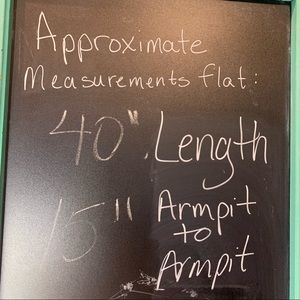 Approximate
Measurements flat:
40". Length
15" Armpit
to
Armpit